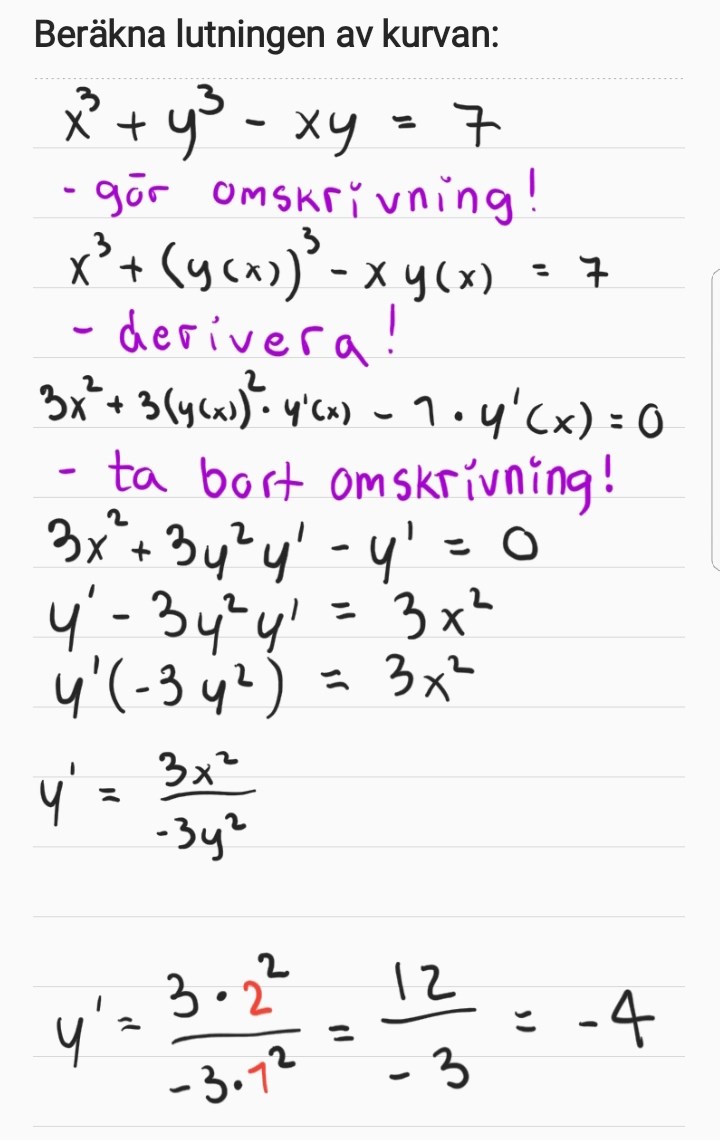 Beräkna lutningen av kurvan:
x³ + y³ - xy = 7
- gör omskrivning!
x³ + (y(x))³ - x y(x) = 7
- derivera!
3x² + 3(y(x))² · y'(x) - 1 · y'(x) = 0
- ta bort omskrivning!
3x² + 3y²y' - y' = 0
y' - 3y²y' = 3x²
y'(-3y²) = 3x²
y' = 3x² / -3y²
y' = 3·2² / -3·1² = 12 / -3 = -4